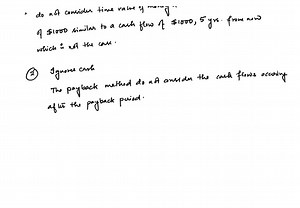 • do not consider time value of money
of $1000 similar to a cash flow of $1000, 5 yrs. from now
which is not the case.
② Ignores cash
The payback method do not consider the cash flows occuring
after the payback period.